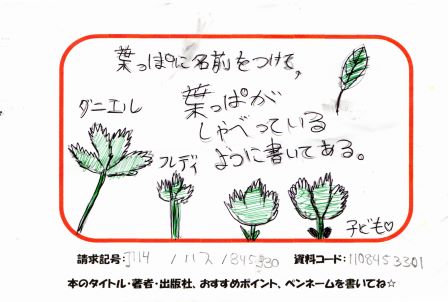 葉っぱに名前をつけて、
葉っぱが
しゃべっている
ように書いてある。
ダニエル
フレディ
子ども♡
請求記号: J114 / ハス / 845330 資料コード: 1108453301
本のタイトル・著者・出版社、おすすめポイント、ペンネームを書いてね☆